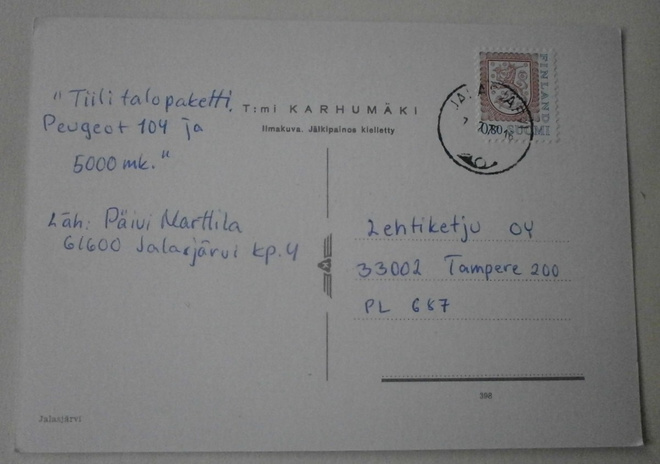 "Tiilitalopaketti,
Peugeot 104 ja
5000 mk."
Läh: Päivi Marttila
61600 Jalasjärvi kp.4
T:mi KARHUMÄKI
Ilmakuva. Jälkipainos kielletty
FINLAND
SUOMI
0,80
Lehtiketju OY
33002 Tampere 200
PL 687
398
Jalasjärvi